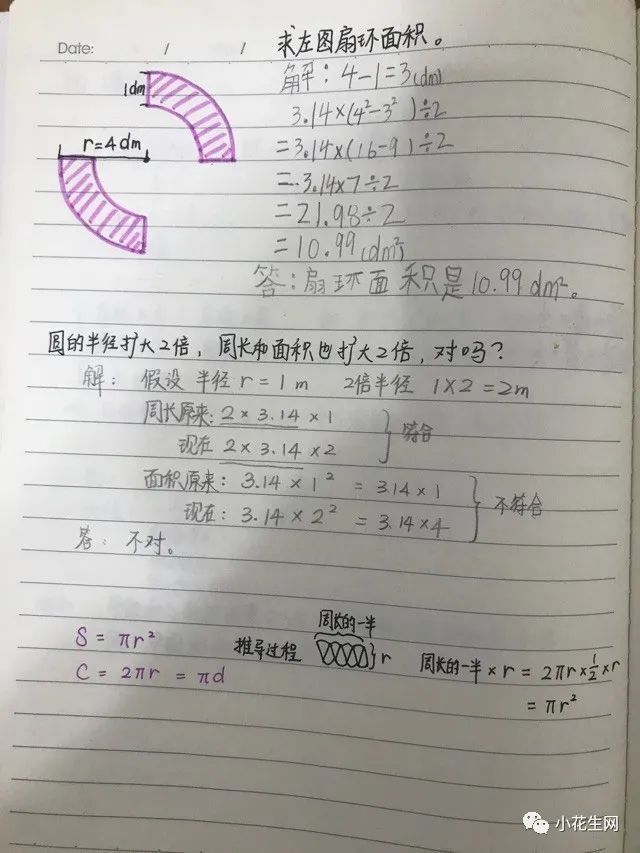 Date: / /
求左图扇环面积。
1dm
r=4dm
解：4-1=3(dm)
3.14×(4²-3²)÷2
=3.14×(16-9)÷2
=3.14×7÷2
=21.98÷2
=10.99(dm²)
答：扇环面积是10.99dm²。
圆的半径扩大2倍，周长和面积也扩大2倍，对吗？
解：假设 半径r=1m 2倍半径 1×2=2m
周长原来：2×3.14×1
现在 2×3.14×2
符合
面积原来：3.14×1²=3.14×1
现在：3.14×2²=3.14×4
不符合
答：不对。
S=πr²
C=2πr=πd
推导过程
周长的一半
r
周长的一半×r=2πr×1/2×r
=πr²
小花生网